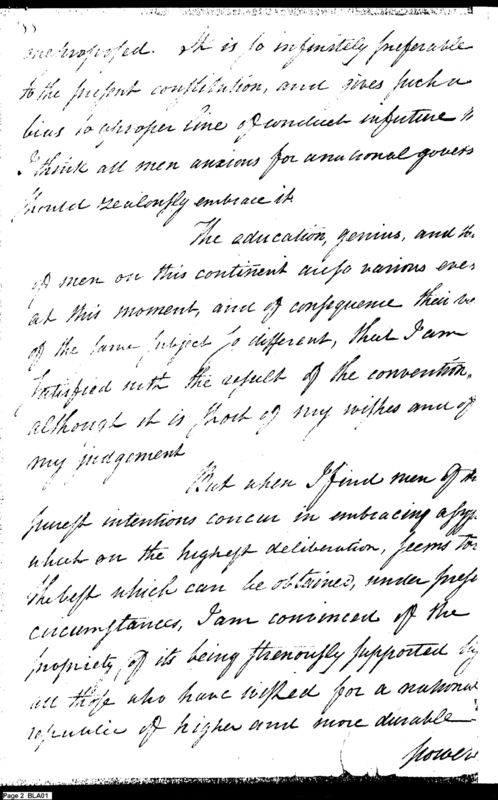 one proposed. It is so infinitely preferable
to the present constitution, and gives such a
bias to a proper line of conduct in future
I think all men anxious for a national govern
should zealously embrace it
The education, genius, and
of men on this continent are so various even
at this moment, and of consequence their
of the same subject so different, that I am
satisfied with the result of the convention,
although it is short of my wishes and of
my judgement
But when I find men of the
purest intentions concur in embracing a
which on the highest deliberation, seems to
the best which can be obtained, under prese
circumstances, I am convinced of the
propriety, of its being strenously supported by
all those who have wished for a national
republic of higher and more durable
powers
Page 2 BLA01